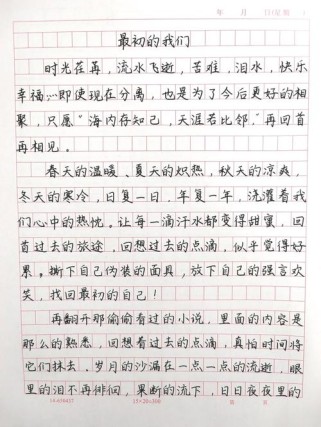 年 月 日(星期 )
最初的我们
时光荏苒，流水飞逝，苦难，泪水，快乐
幸福……即使现在分离，也是为了今后更好的相
聚，只愿“海内存知己，天涯若比邻。”再回首
再相见。
春天的温暖、夏天的炽热，秋天的凉爽，
冬天的寒冷，日复一日，年复一年，洗濯着我
们心中的热忱。让每一滴汗水都变得甜蜜，回
首过去的旅途，回想过去的点滴，似乎觉得好
累。撕下自己伪装的面具，放下自己的强言欢
笑，找回最初的自己！
再翻开那偷偷看过的小说，里面的内容是
那么的熟悉，回想着过去的点滴，真怕时间将
它们抹去。岁月的沙漏在一点一点的流逝，眼
里的泪不再徘徊，果断的流下，日日夜夜里的
15×20=300